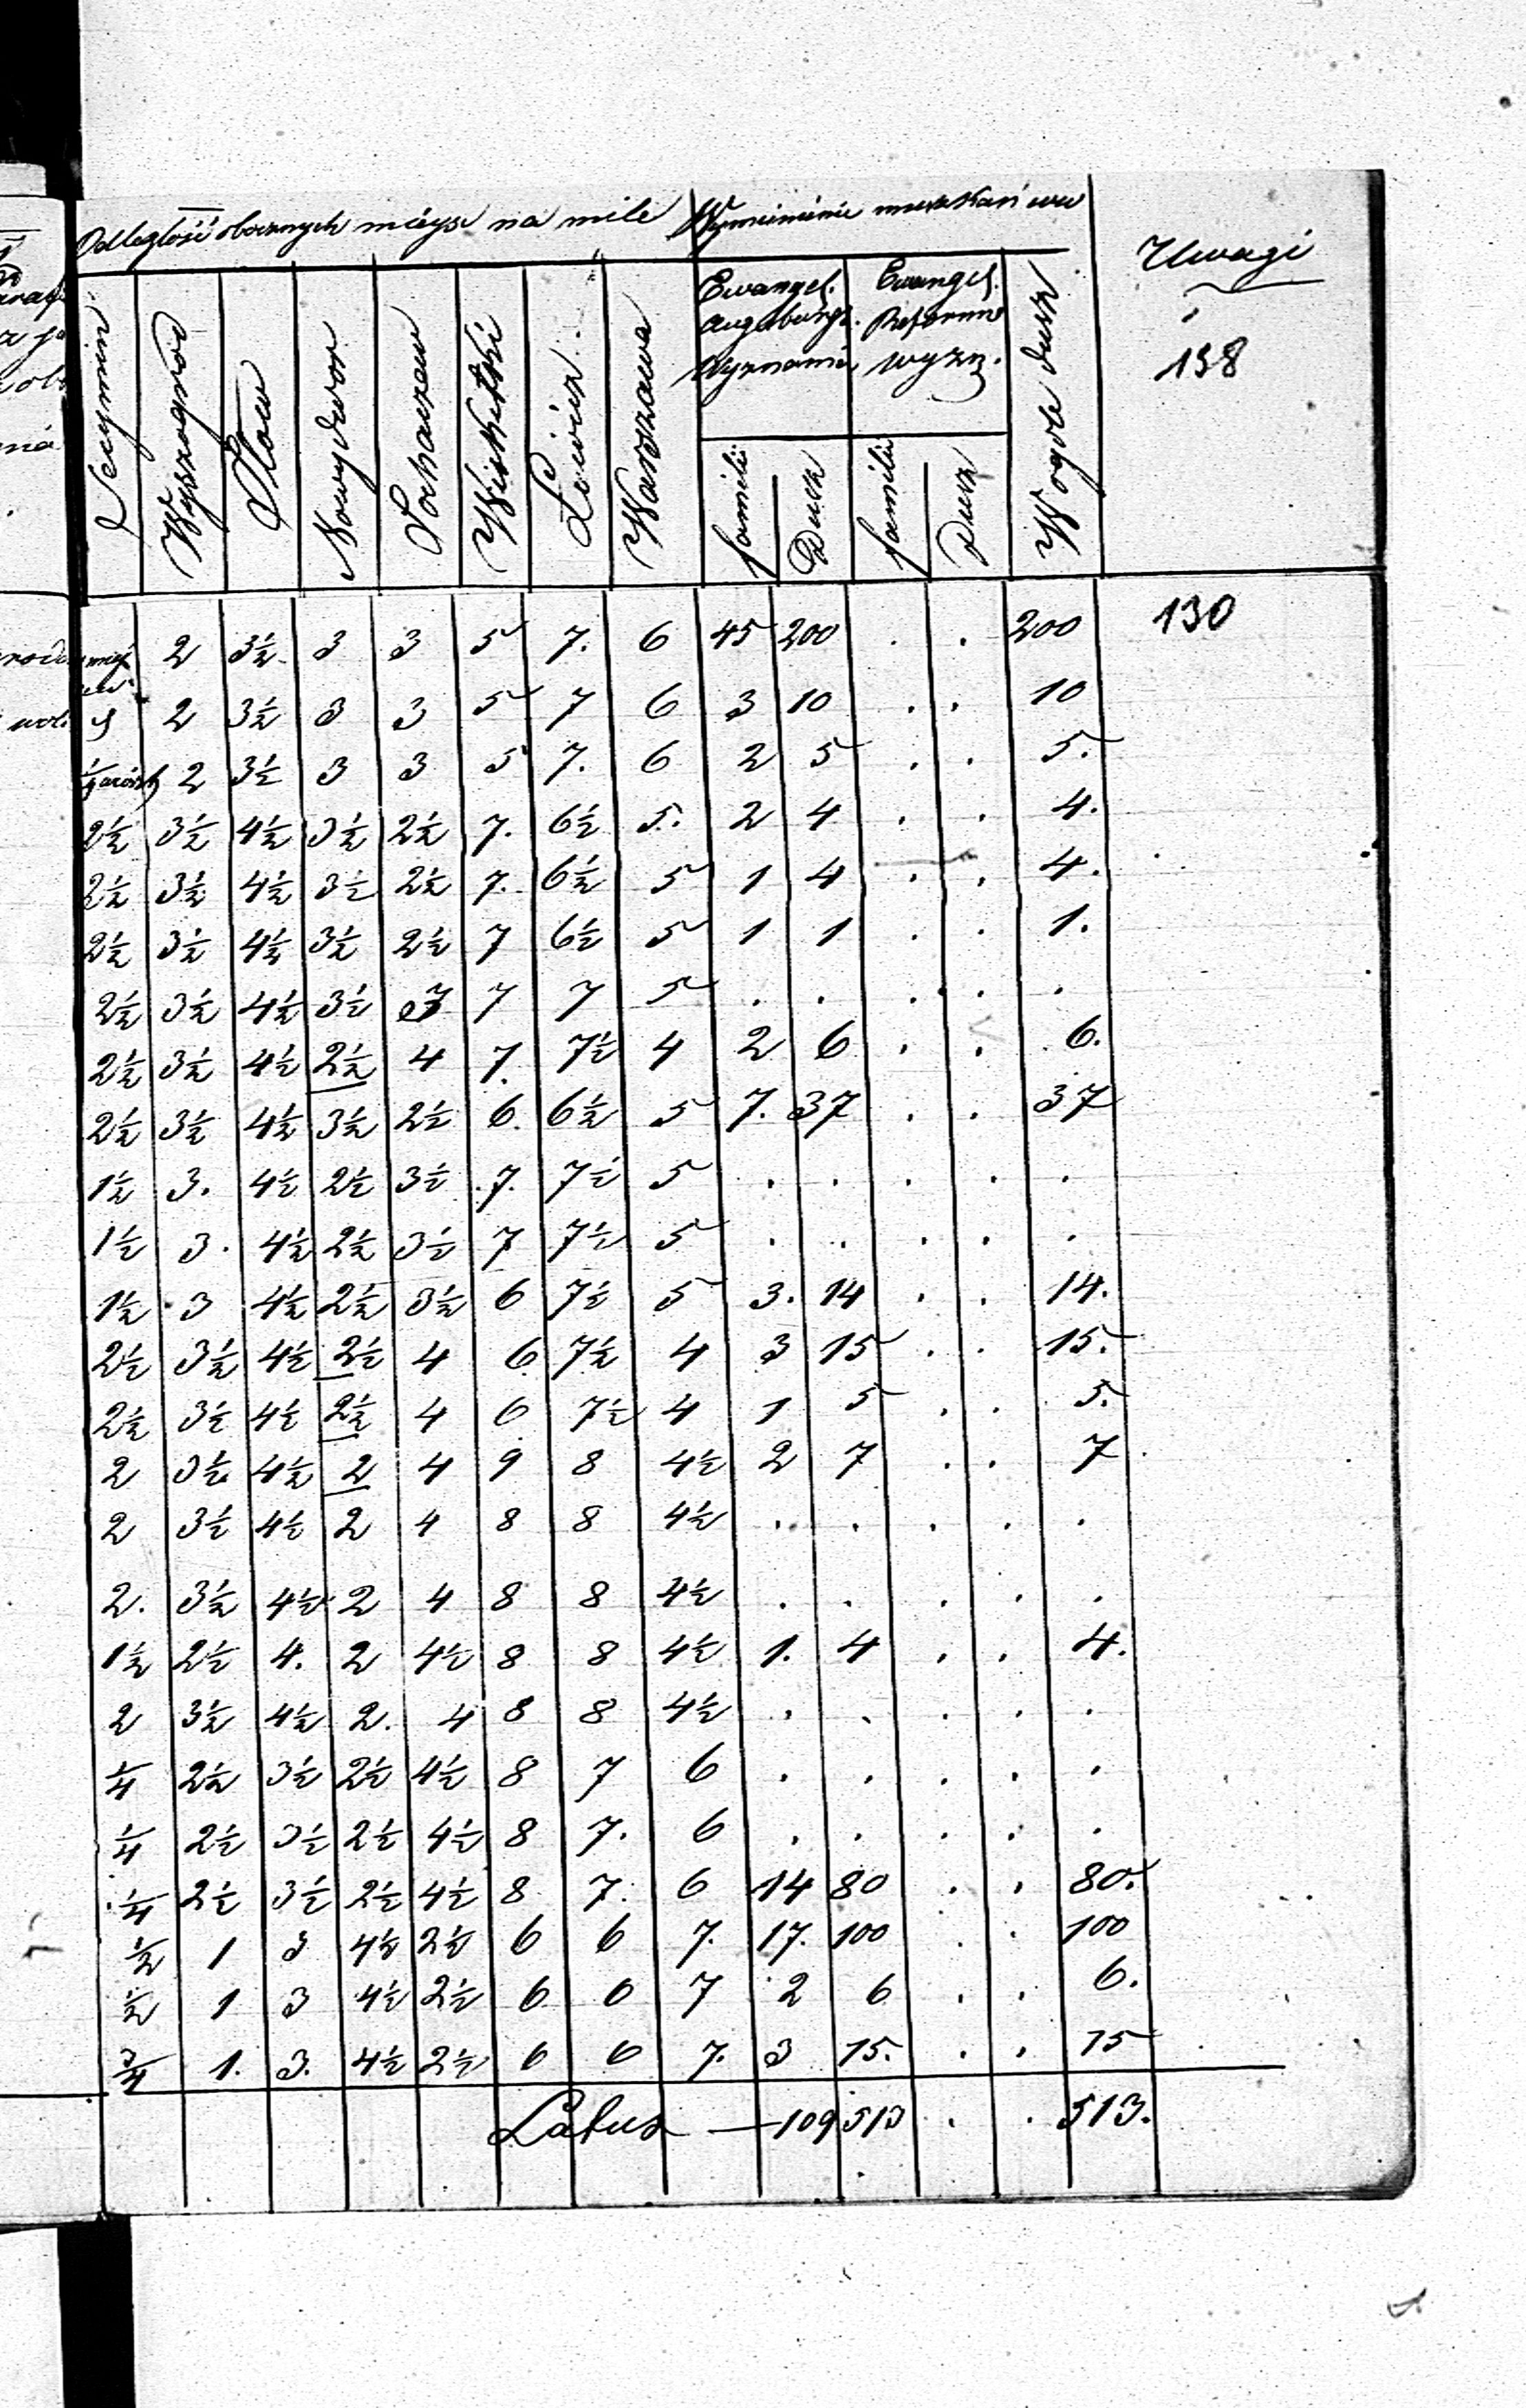 Odległość obocznych mieysc na mile Wymienienie mieszkańców Uwagi
Secymin Wyszogrod Iłow Nowydwor Sochaczew Wiskitki Łowicz Warszawa
Ewangel. Augsburgs. Wyznania Ewangel. Reform. wyzn. W ogole dusz 138
familii Dusz familii Dusz
2 3½ 3 3 5 7. 6 45 200 . . 200 130
2 3½ 3 3 5 7 6 3 10 . . 10
2 3½ 3 3 5 7. 6 2 5 . . 5.
2½ 3½ 4½ 3½ 2½ 7. 6½ 5. 2 4 . . 4.
2½ 3½ 4½ 3½ 2½ 7. 6½ 5 1 4 . . 4.
2½ 3½ 4½ 3½ 2½ 7 6½ 5 1 1 . . 1.
2½ 3½ 4½ 3½ 7 7 5 . . . . .
2½ 3½ 4½ 2½ 4 7. 7½ 4 2 6 . . 6.
2½ 3½ 4½ 3½ 2½ 6. 6½ 5 7. 37 . . 37
1½ 3. 4½ 2½ 3½ 7. 7½ 5 . . . . .
1½ 3. 4½ 2½ 3½ 7 7½ 5 . . . . .
1½ 3 4½ 2½ 3½ 6 7½ 5 3. 14 . . 14.
2½ 3½ 4½ 2½ 4 6 7½ 4 3 15 . . 15.
2½ 3½ 4½ 2½ 4 6 7½ 4 1 5 . . 5.
2 3½ 4½ 2 4 9 8 4½ 2 7 . . 7
2 3½ 4½ 2 4 8 8 4½ . . . . .
2. 3½ 4½ 2 4 8 8 4½ . . . . .
1½ 2½ 4. 2 4½ 8 8 4½ 1. 4 . . 4.
2 3½ 4½ 2. 4 8 8 4½ . . . . .
¼ 2½ 3½ 2½ 4½ 8 7 6 . . . . .
¼ 2½ 3½ 2½ 4½ 8 7. 6 . . . . .
¼ 2½ 3½ 2½ 4½ 8 7. 6 14 80 . . 80.
½ 1 3 4½ 2½ 6 6 7. 17. 100 . . 100
½ 1 3 4½ 2½ 6 6 7 2 6 . . 6.
¾ 1. 3. 4½ 2½ 6 6 7. 3 15. . . 15
Latus — 109 513 . . 513.